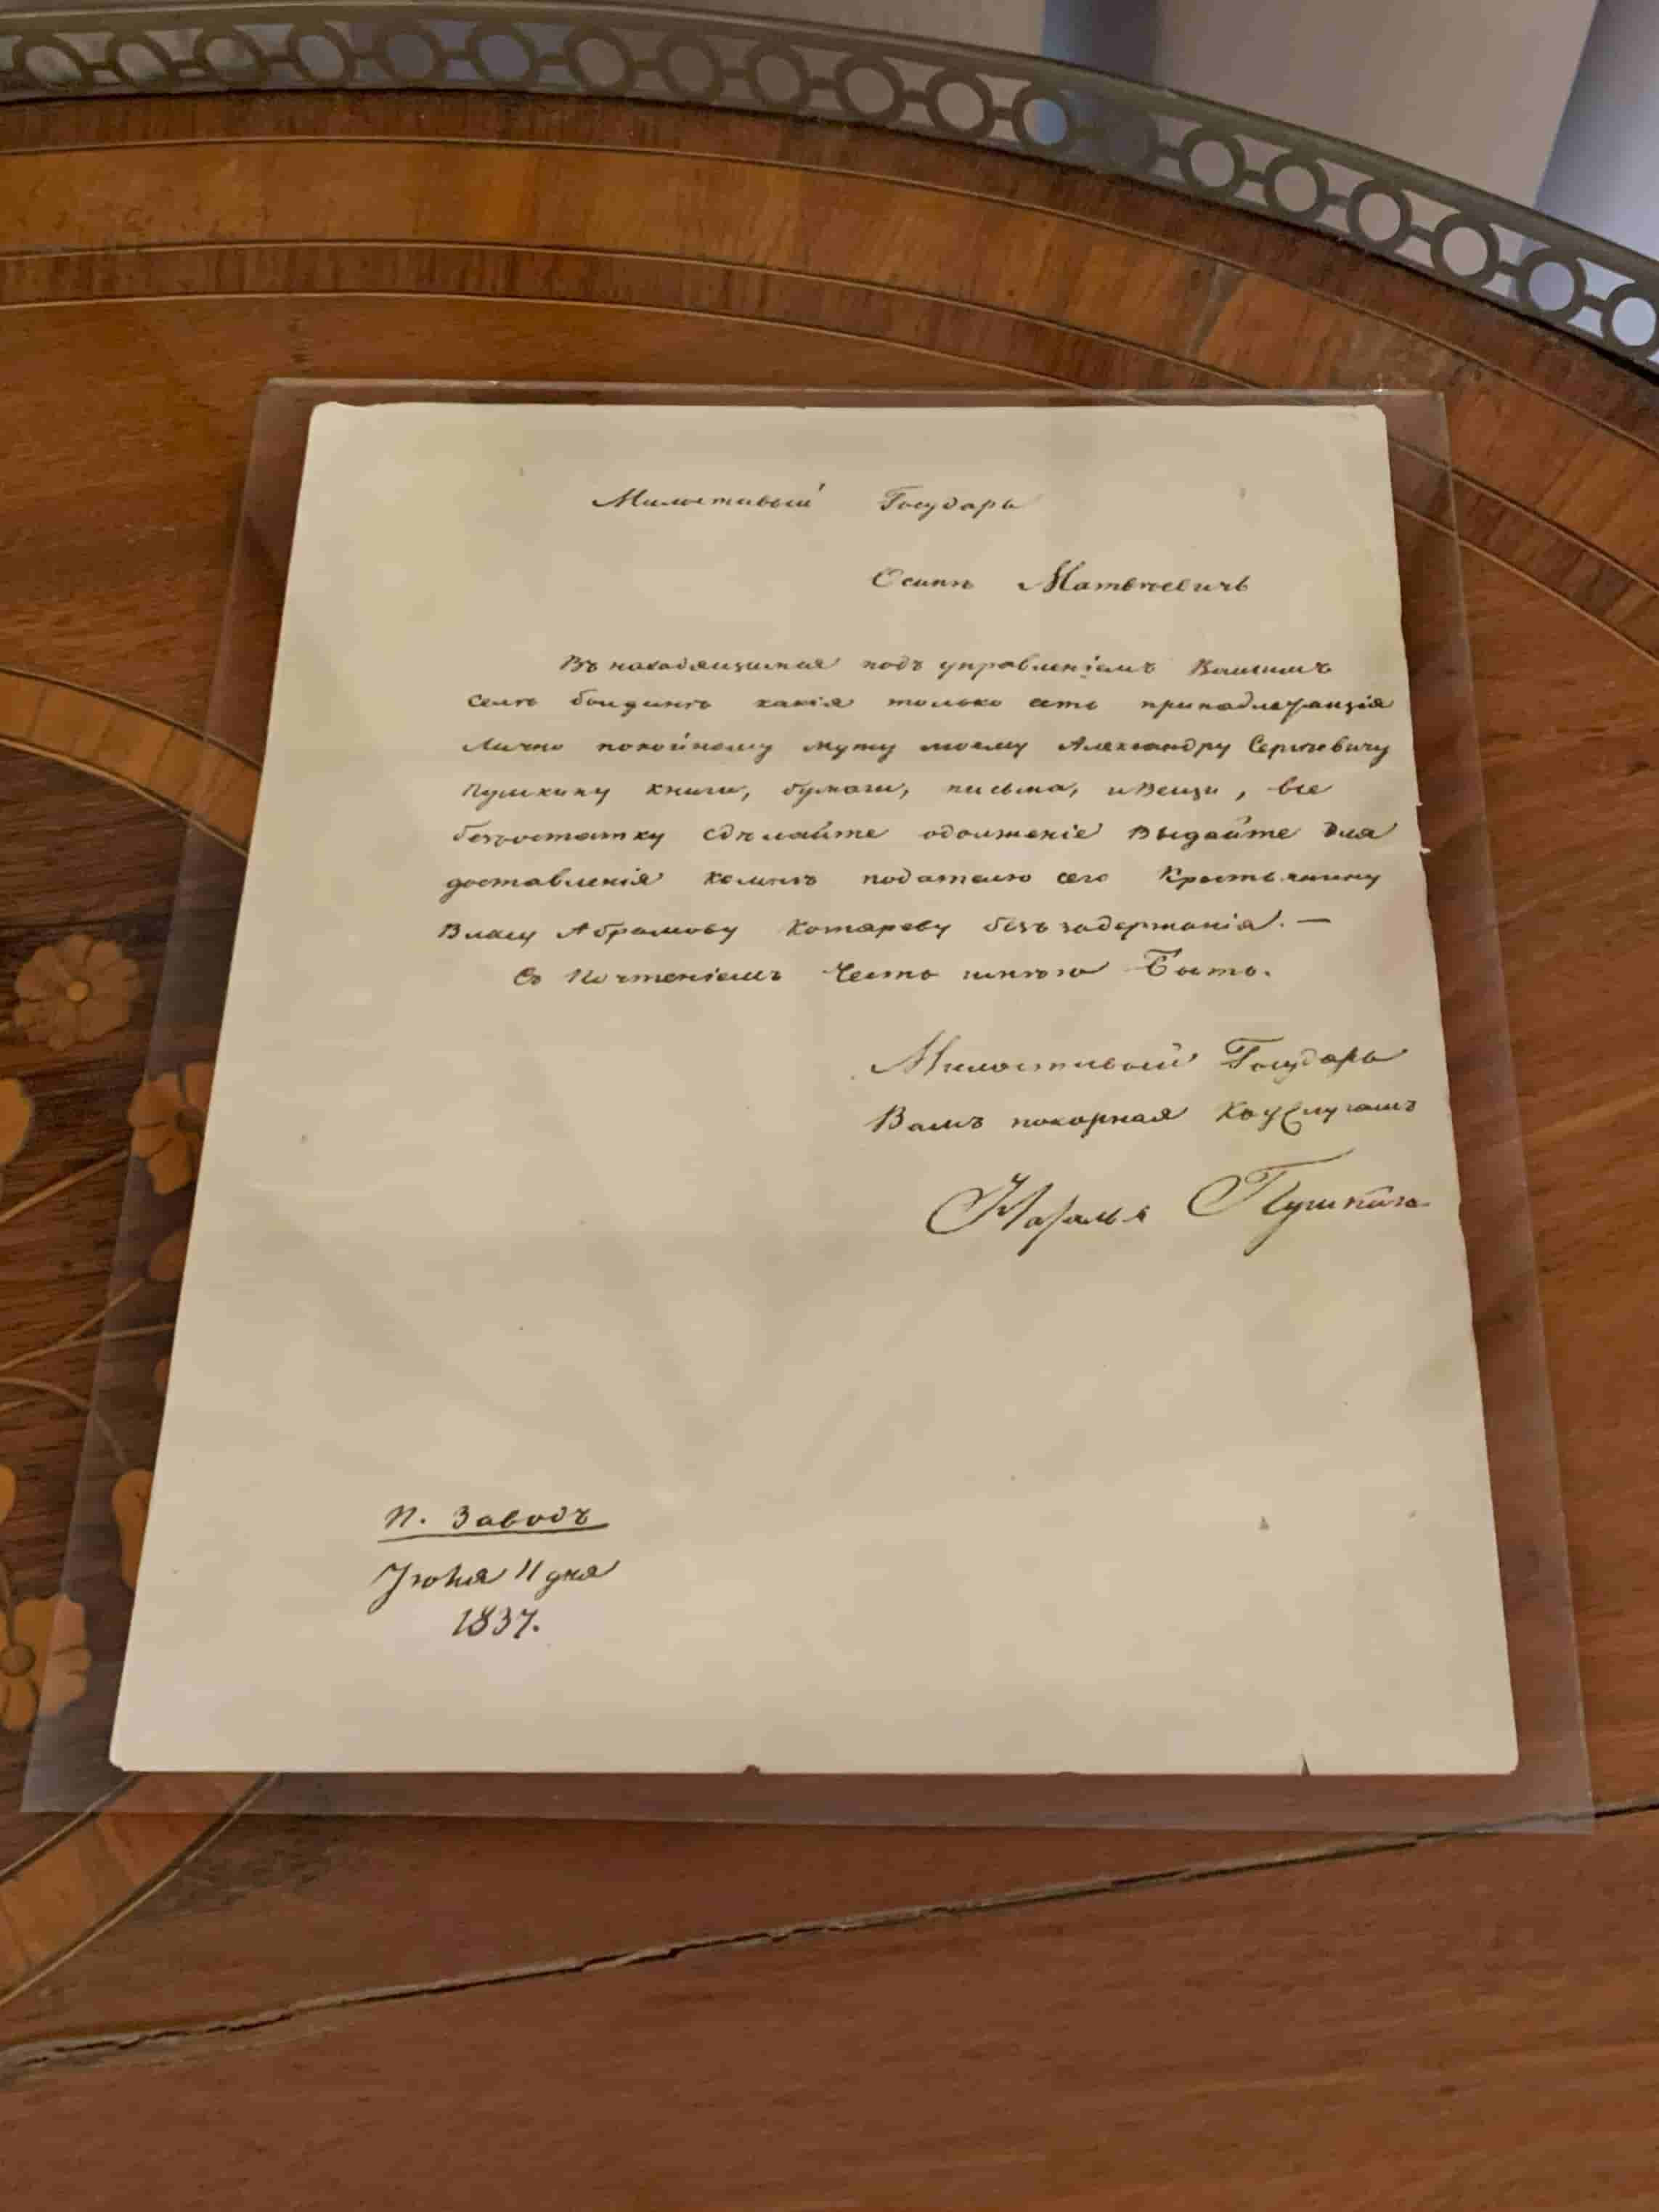 Милостивый Государь
Осипъ Матвѣевичь
Въ находящимся подъ управленіемъ Вашимъ
селѣ болдинѣ какія только есть принадлежащія
лично покойному мужу моему Александру Сергѣевичу
Пушкину книги, бумаги, письма, и Вещи, все
безъостатку сдѣлайте одолженіе Выдайте для
доставленія комнѣ подателю сего Крестьянину
Власу Абрамову Котяреву безъ задержанія. —
Съ Почтеніемъ Честь имѣю Быть.
Милостивый Государь
Вамъ покорная Коуслугамъ
Наталья Пушкина
П. Заводъ
Іюня 11 дня
1837.